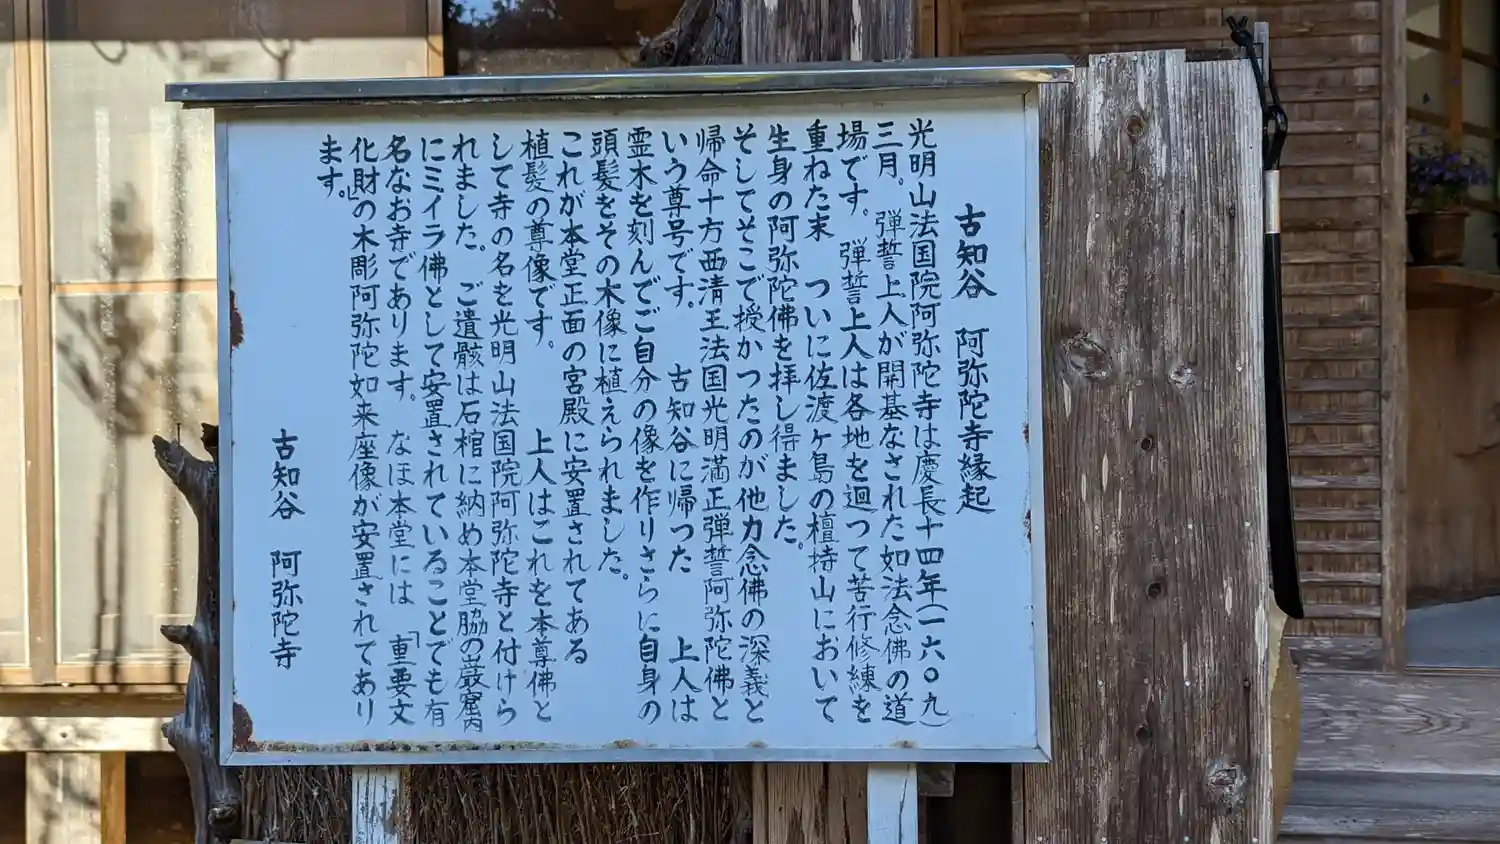 古知谷　阿弥陀寺縁起
光明山法国院阿弥陀寺は慶長十四年(一六〇九)
三月。　弾誓上人が開基なされた如法念佛の道
場です。　弾誓上人は各地を廻つて苦行修練を
重ねた末　ついに佐渡ヶ島の檀持山において
生身の阿弥陀佛を拝し得ました。
そしてそこで授かつたのが他力念佛の深義と
帰命十方西清王法国光明満正弾誓阿弥陀佛と
いう尊号です。　古知谷に帰つた　上人は
霊木を刻んでご自分の像を作りさらに自身の
頭髪をその木像に植えられました。
これが本堂正面の宮殿に安置されてある
植髪の尊像です。　上人はこれを本尊佛と
して寺の名を光明山法国院阿弥陀寺と付けら
れました。　ご遺骸は石棺に納め本堂脇の巌窟内
にミイラ佛として安置されていることでも有
名なお寺であります。　なほ本堂には「重要文
化財」の木彫阿弥陀如来座像が安置されてあり
ます。
古知谷　阿弥陀寺